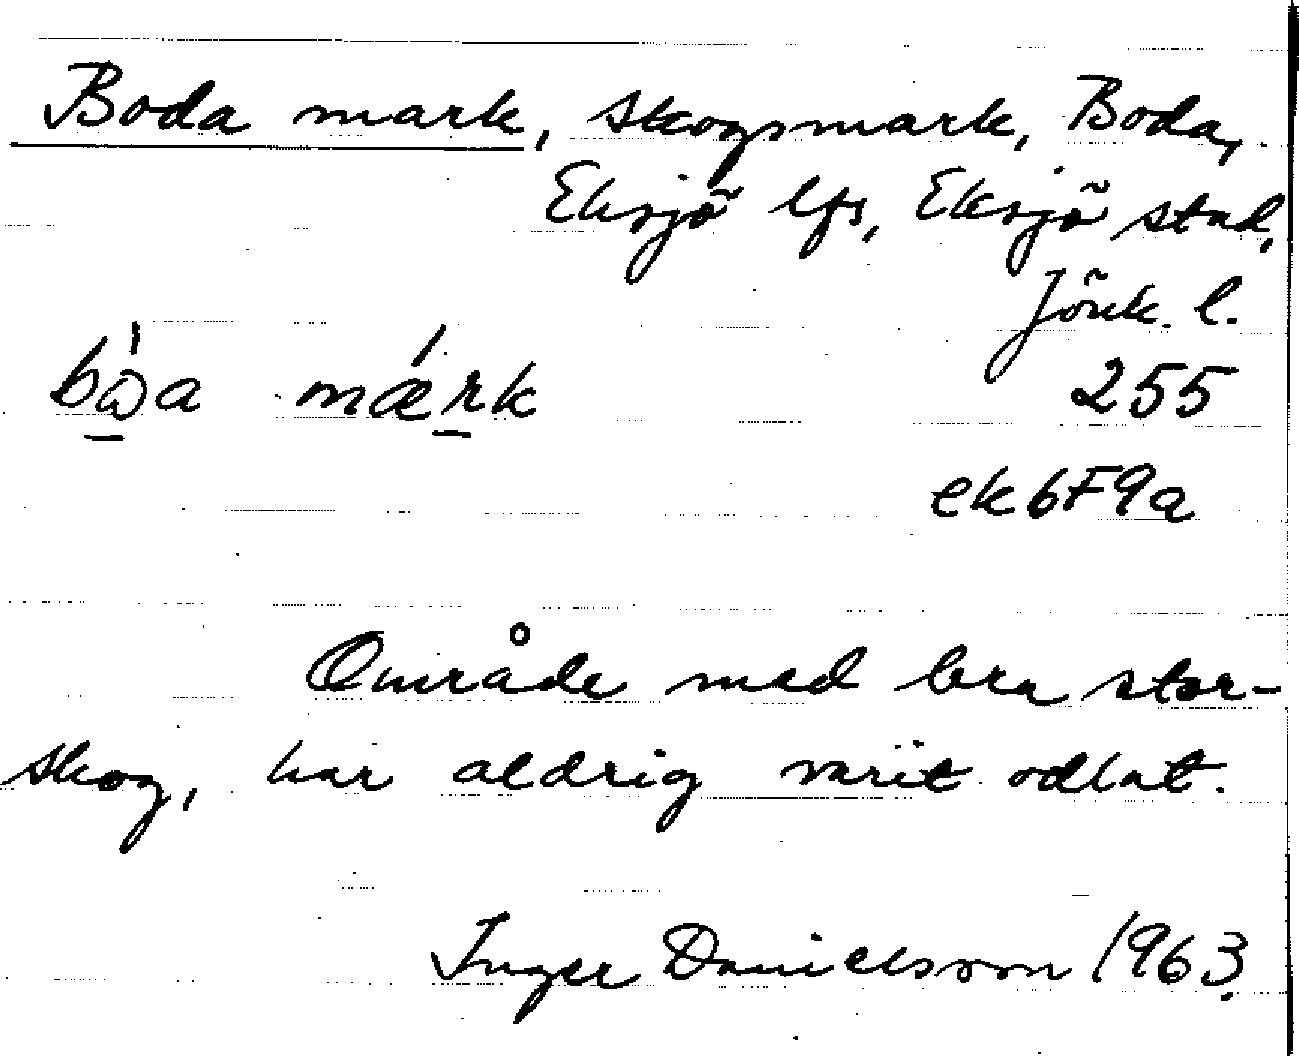 Boda mark, skogsmark, Boda,
Eksjö lfs, Eksjö stad,
Jönk. l.
bώ̲a mæ̀r̲k 255
ek6F9a
Område med bra stor-
skog, har aldrig varit odlat.
Inger Danielsson 1963.